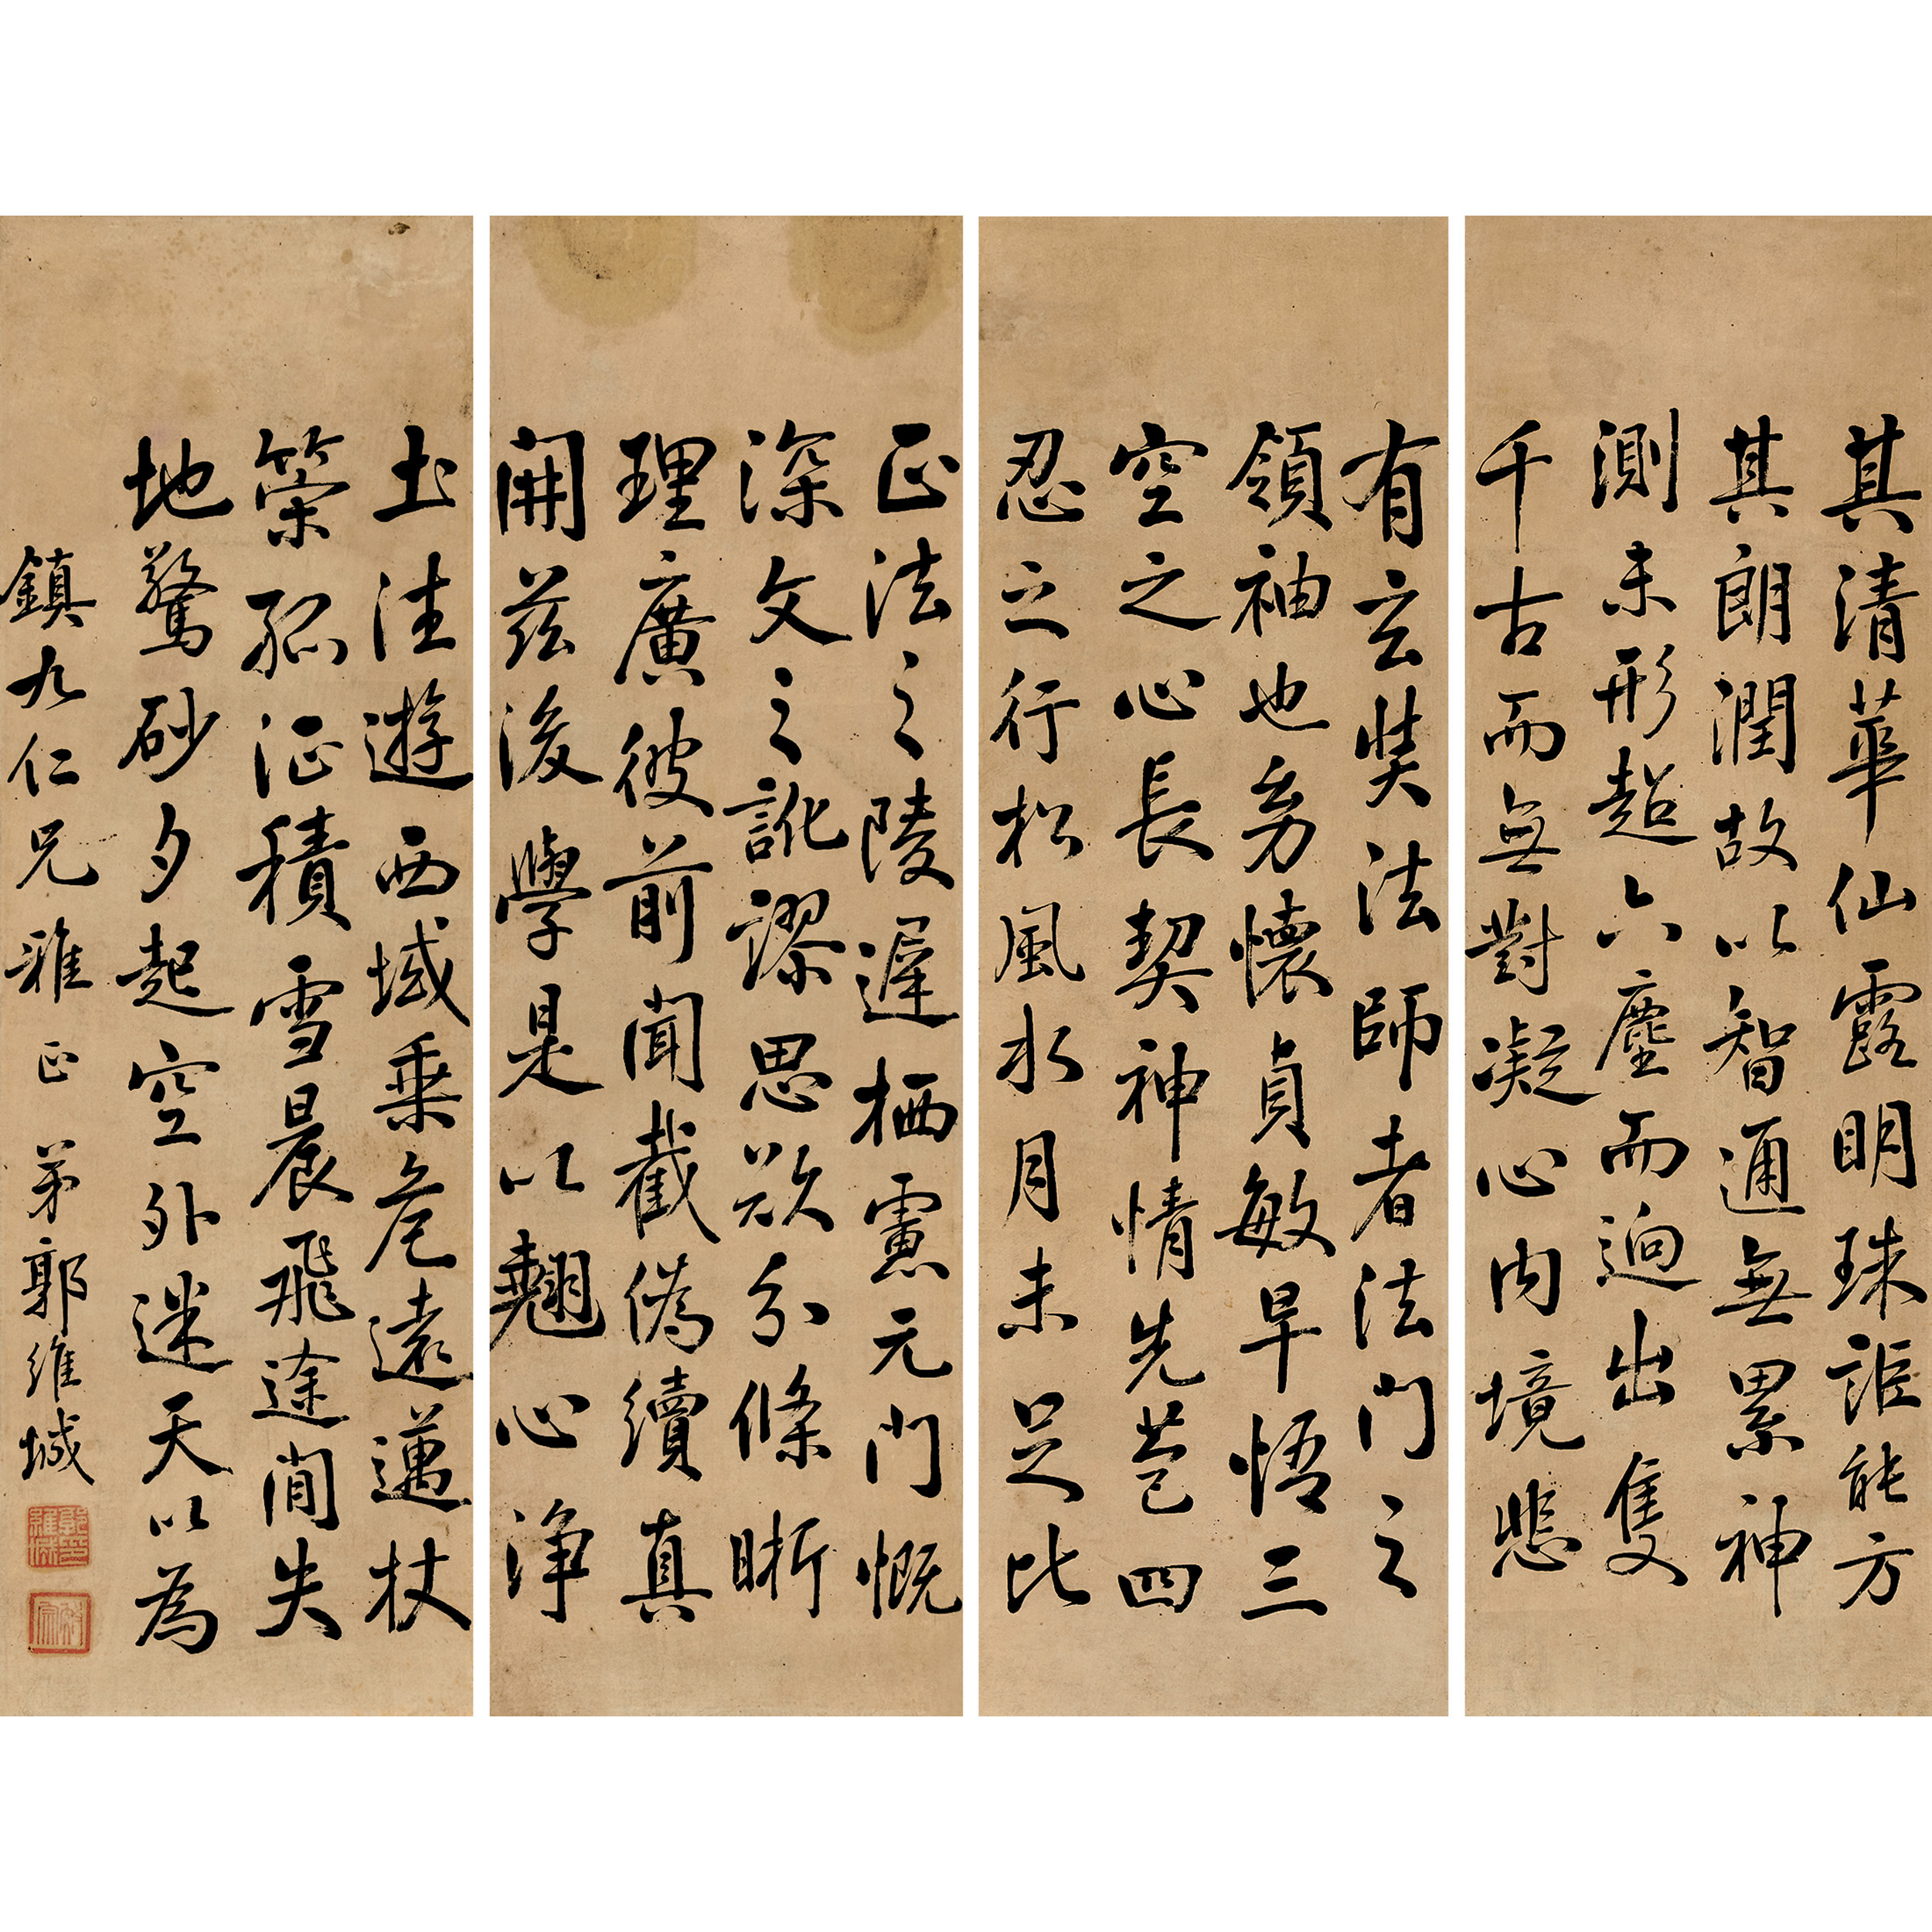 其清華仙露明珠詎能方
其朗潤故以智通無累神
測未形超六塵而逈出隻
千古而無對凝心內境悲
有玄奘法師者法門之
領袖也㓜懷貞敏早悟三
空之心長契神情先苞四
忍之行松風水月未足比
正法之陵遲栖慮元門慨
深文之訛謬思欲分條晣
理廣彼前聞截偽續真
開茲後學是以翹心淨
土往遊西域乘危遠邁杖
策孤征積雪晨飛途間失
地驚砂夕起空外迷天以為
鎮九仁兄雅正 弟郭維城